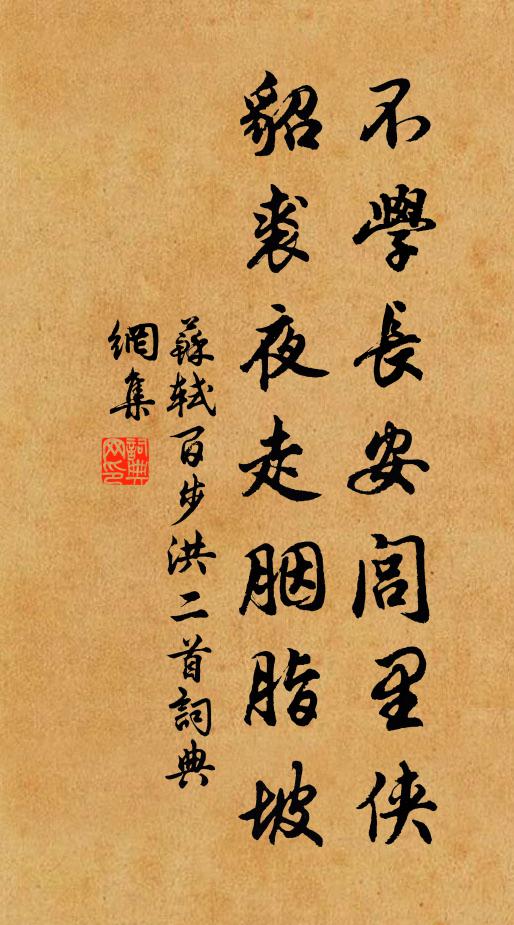 不學長安閭里俠
貂裘夜走胭脂坡
蘇軾百步洪二首詞典
網集
詞典网印